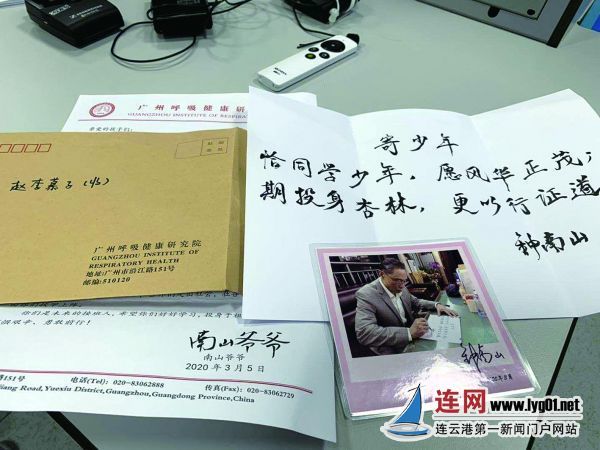 广州呼吸健康研究院
GUANGZHOU INSTITUTE OF RESPIRATORY
亲爱的孩子们:
邮政
赵
广州呼吸健康研究院
GUANGZHOU INSTITUTE OF
RESPIRATORY HEALTH
地址:广州市沿江路151号
邮编:510120
寄少年
恰同学少年，愿风华正茂；
期投身杏林，更以行证道
钟南山
钟南山
你们是未来的接班人，希望你们好好学习，投身于
南山爷爷
南山爷爷
2020年3月5日
路151号 电话(Tel): 020-83062888 传真(Fax): 020-83062729
Jiang Road, Yuexiu District, Guangzhou, Guangdong Province, China
连网 www.lyg01.net
连云港第一新闻门户网站